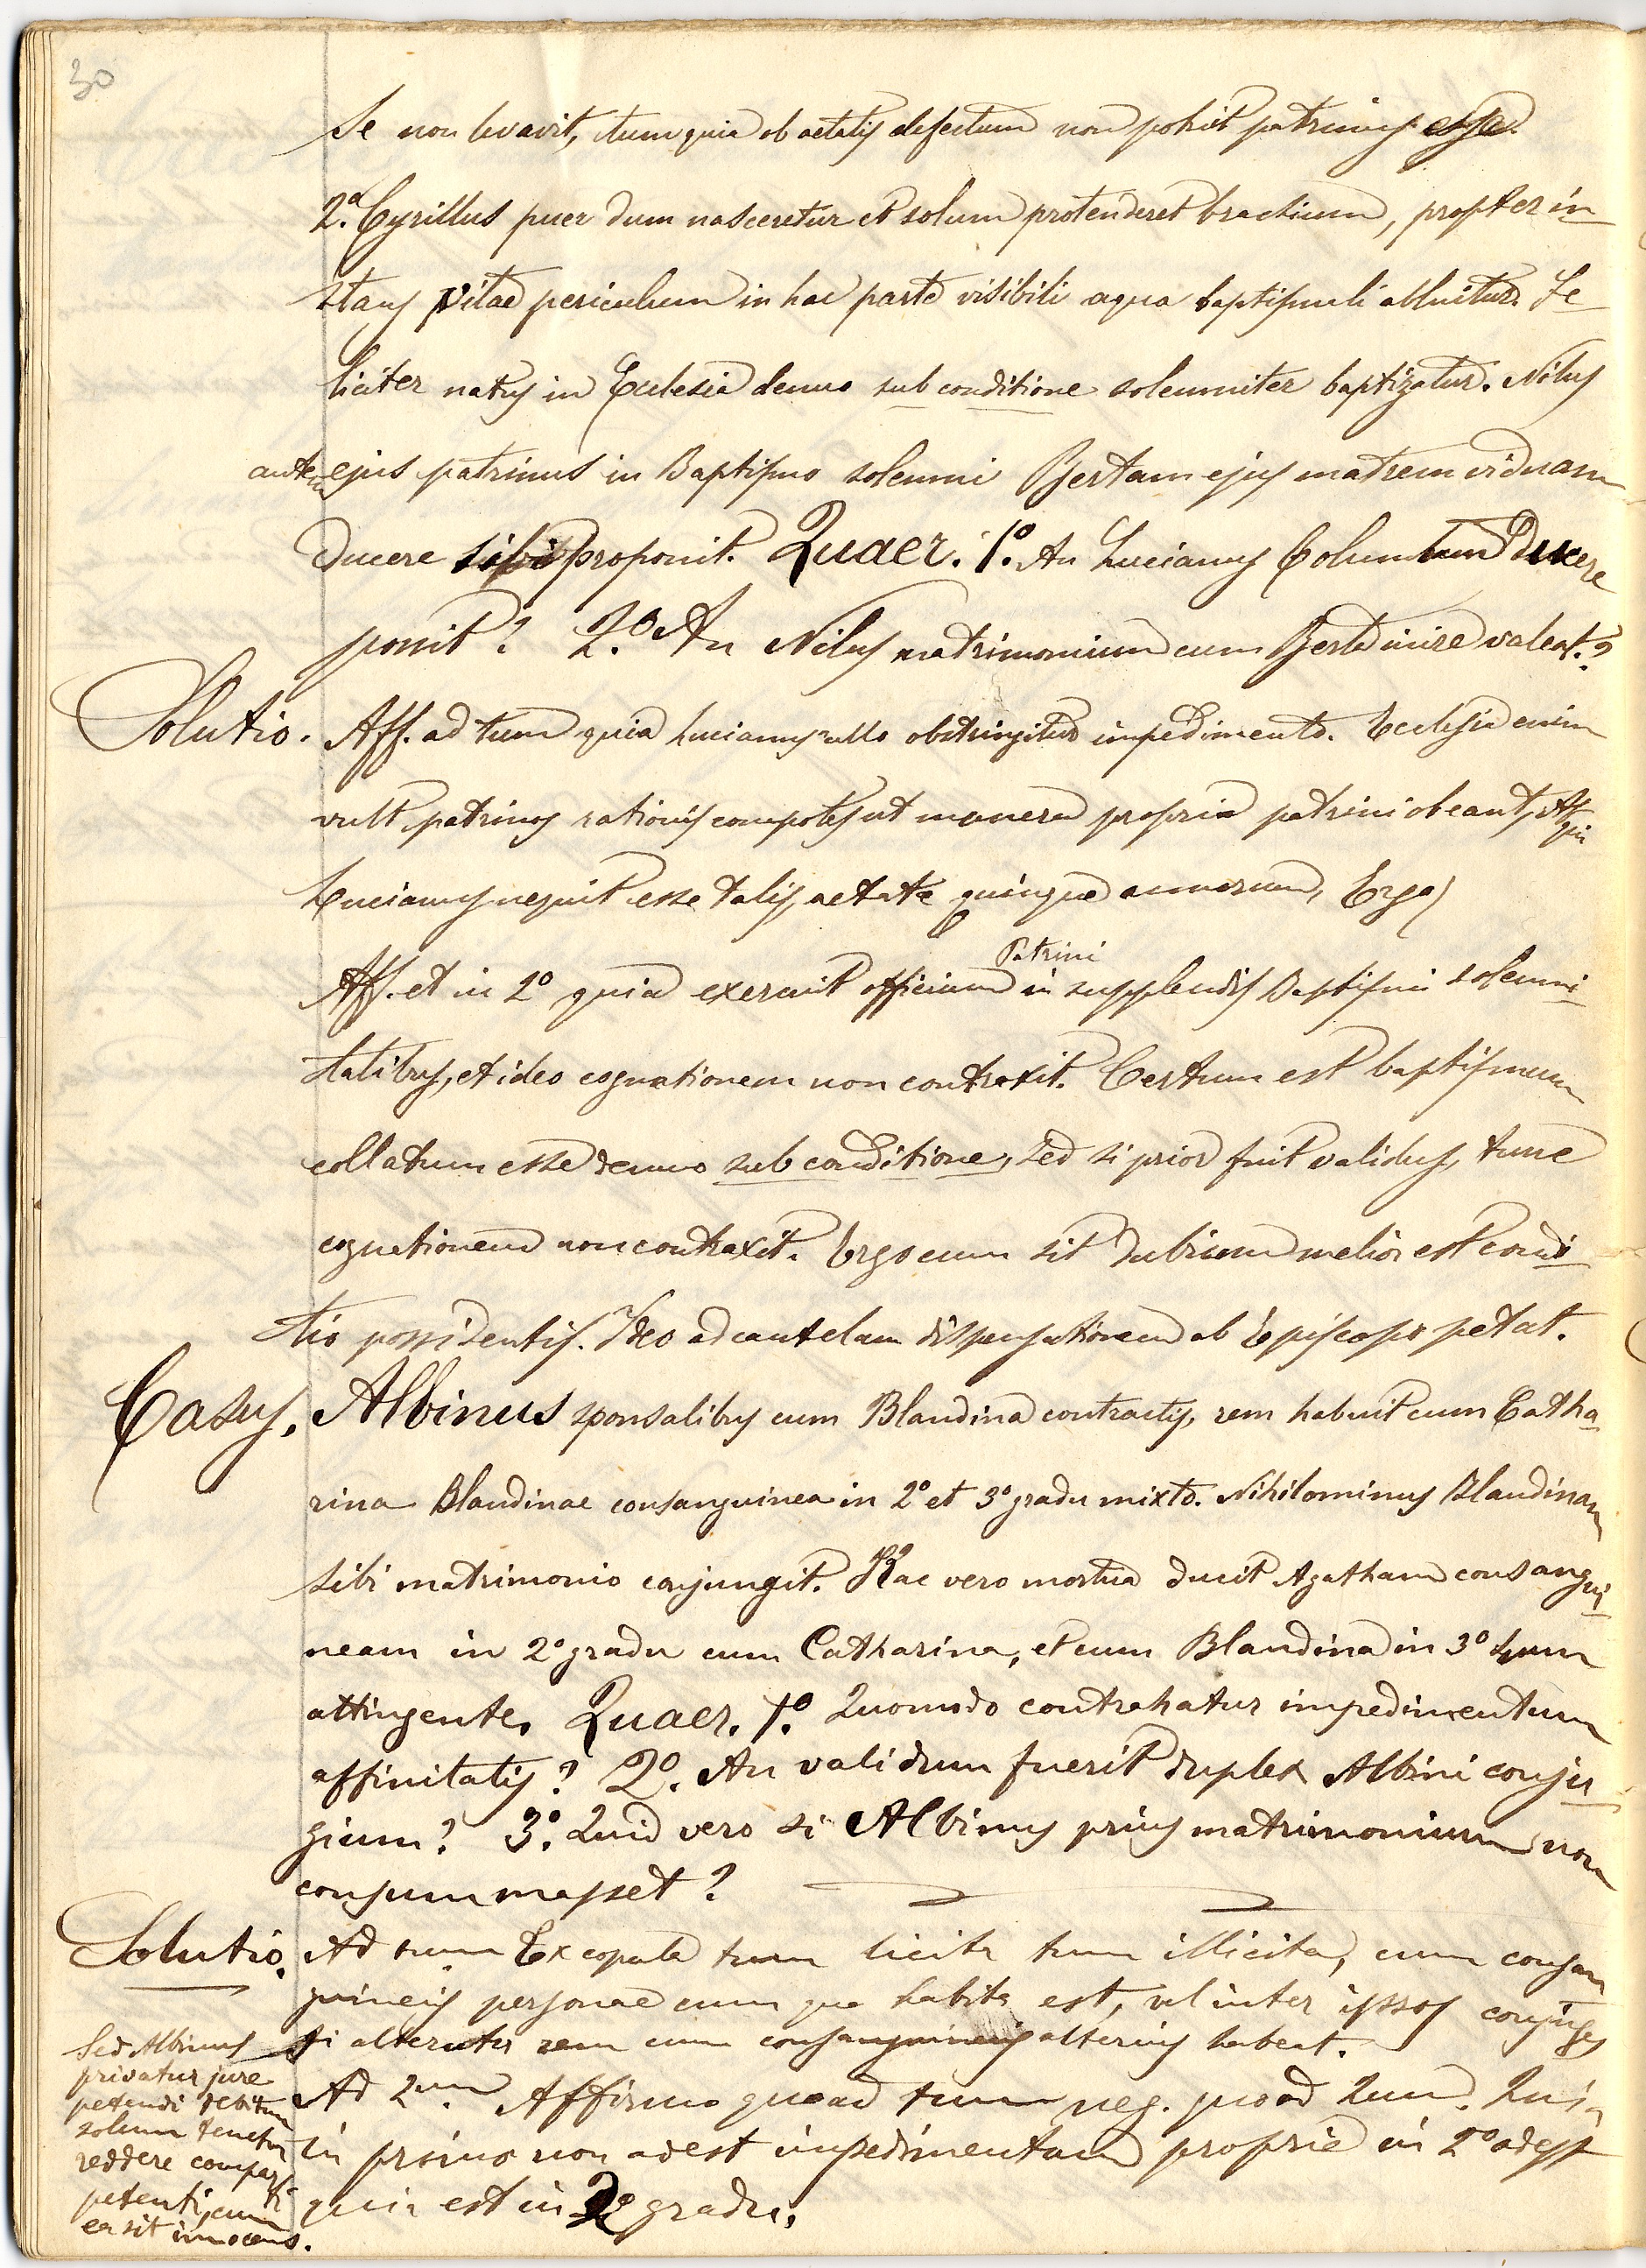 30
se non levavit, tum quia ob aetatis defectum non potuit patrinus esse.
2º. Cyrillus puer dum nasceretur et solum protenderet brachium, propter in
stans vitae periculum in hac parte visibili aqua baptismali abluitur. Fe
liciter natus in Ecclesia denuo sub conditione solemniter baptizatur. Nilus
autem ejus patrinus in Baptismo solemni Bertam ejus matrem viduam
ducere sibi proponit. Quaer. 1º. An Lucianus Columbam ducere
possit? 2.º An Nilus matrimonium cum Berta inire valeat.?
Solutio. Aff. ad 1um quia Lucianus nullo obstringitur impedimento. Ecclesia enim
vult patrinos rationis compotes ut munera propria patrini obeant, Atqui
Lucianus nequit esse talis, aetate quinque annorum, Ergo
Patrini
Aff. et in 2º quia exercuit officium in supplendis Baptismi solemni
tatibus, et ideo cognationem non contraxit. Certum est baptismum
collatum esse denuo sub conditione, sed si prior fuit validus, tunc
cognationem non contraxit. Ergo cum sit dubium melior est condi
tio possidentis. Ideo ad cautelam dispensationem ab Episcopo petat.
Casus. Albinus sponsalibus cum Blandina contractis, rem habuit cum Catha
rina Blandinae consanguinea in 2º et 3º gradu mixto. Nihilominus Blandinam
sibi matrimonio conjungit. Hac vero mortua ducit Agatham consangui
neam in 2º gradu cum Catharina, et cum Blandina in 3º 4um
attingente. Quaer. 1º. Quomodo contrahatur impedimentum
affinitatis? 2º. An validum fuerit duplex Albini conju
gium? 3º. Quid vero si Albinus prius matrimonium non
consummasset?
Solutio. Ad 1um Ex copula tum licita tum illicita, cum consan
guineis personae cum qua habita est, vel inter ipsos conjuges
si alteruter rem cum consanguineis alterius habeat.
Ad 2um. Affirmo quoad 1um neg. quoad 2um. Quia
in primo non adest impedimentum proprie in 2º adest
quia est in 2º gradu.
Sed Albinus
privatur jure
petendi debitum
solum tenetur
reddere comparti
petenti, cum
ea sit innocens.